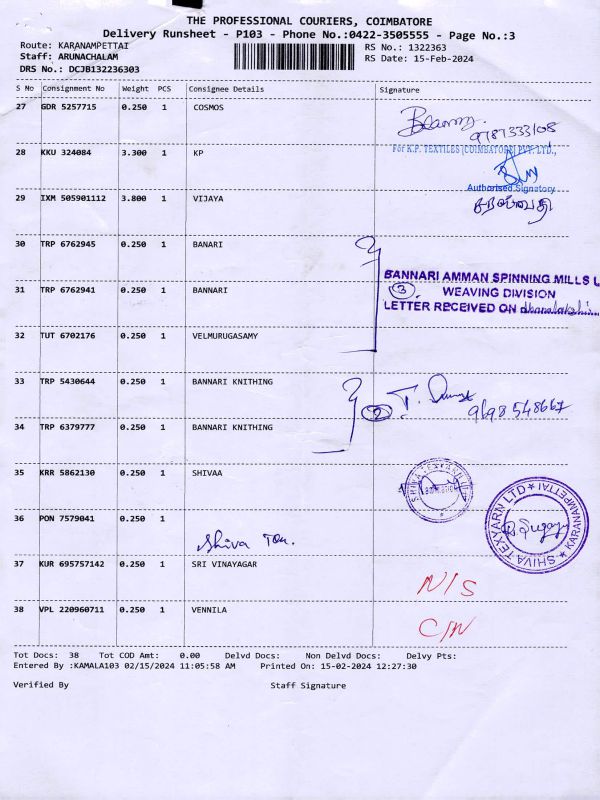 THE PROFESSIONAL COURIERS, COIMBATORE
Delivery Runsheet - P103 - Phone No.:0422-3505555 - Page No.:3
Route: KARANAMPETTAI
RS No.: 1322363
Staff: ARUNACHALAM
RS Date: 15-Feb-2024
DRS No.: DCJB132236303
S No Consignment No Weight PCS Consignee Details Signature
27 GDR 5257715 0.250 1 COSMOS
9787333108
28 KKU 324084 3.300 1 KP
For K.P. TEXTILES (COIMBATORE) PVT. LTD.,
Authorised Signatory
29 IXM 505901112 3.800 1 VIJAYA
30 TRP 6762945 0.250 1 BANARI
31 TRP 6762941 0.250 1 BANNARI
BANNARI AMMAN SPINNING MILLS L
3 WEAVING DIVISION
LETTER RECEIVED ON
32 TUT 6702176 0.250 1 VELMURUGASAMY
33 TRP 5430644 0.250 1 BANNARI KNITHING
2 9698548667
34 TRP 6379777 0.250 1 BANNARI KNITHING
35 KRR 5862130 0.250 1 SHIVAA
SHIVA TEXYARN LTD
36 PON 7579041 0.250 1
Shiva Tex.
SHIVA TEXYARN LTD ★ KARANAMPETTAI ★
37 KUR 695757142 0.250 1 SRI VINAYAGAR
N/S
38 VPL 220960711 0.250 1 VENNILA
C/N
Tot Docs: 38 Tot COD Amt: 0.00 Delvd Docs: Non Delvd Docs: Delvy Pts:
Entered By :KAMALA103 02/15/2024 11:05:58 AM Printed On: 15-02-2024 12:27:30
Verified By Staff Signature